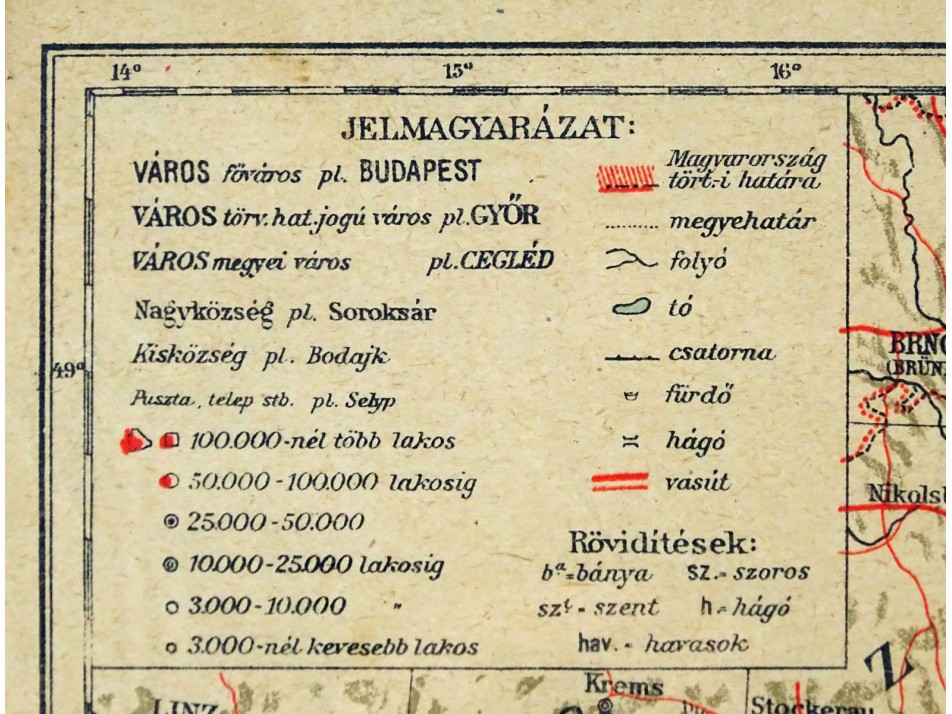 14° 15° 16°
JELMAGYARÁZAT:
VÁROS főváros pl. BUDAPEST
VÁROS törv.hat.jogú város pl.GYŐR
VÁROS megyei város pl.CEGLÉD
Nagyközség pl. Soroksár
Kisközség pl. Bodajk
Puszta, telep stb. pl. Selyp
100.000-nél több lakos
50.000-100.000 lakosig
25.000-50.000
10.000-25.000 lakosig
3.000-10.000 "
3.000-nél kevesebb lakos
Magyarország
tört-i határa
megyehatár
folyó
tó
csatorna
fürdő
hágó
vasút
Rövidítések:
bª=bánya sz.=szoros
szt=szent h=hágó
hav.=havasok
49°
BRNO
(BRÜN
Nikolsb
Z
Krems
LINZ
Stockerau